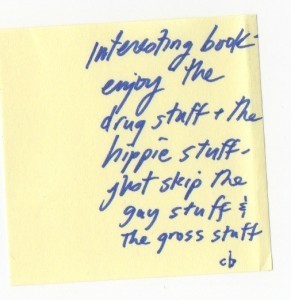 Interesting book-
enjoy the
drug stuff + the
hippie stuff-
just skip the
gay stuff &
the gross stuff
cb